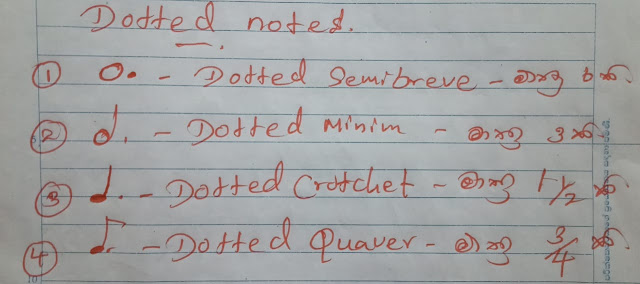 Dotted notes.
① 𝅝. - Dotted Semibreve - 6
② 𝅗𝅥. - Dotted Minim - 3
③ ♩. - Dotted Crotchet - 1 1/2
④ ♪. - Dotted Quaver - 3/4